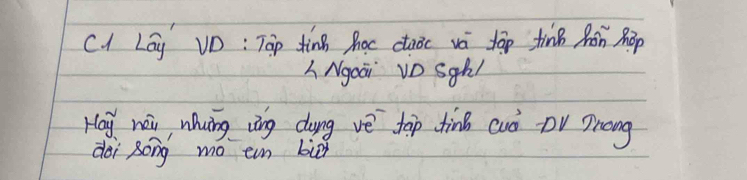 C1 Lấy VD : Tập tính học được và tập tính hỗn hợp
< Ngoài VD Sgk/
Hãy nêu những ứng dụng về tập tính của ĐV Trong
đời sống mà em biết